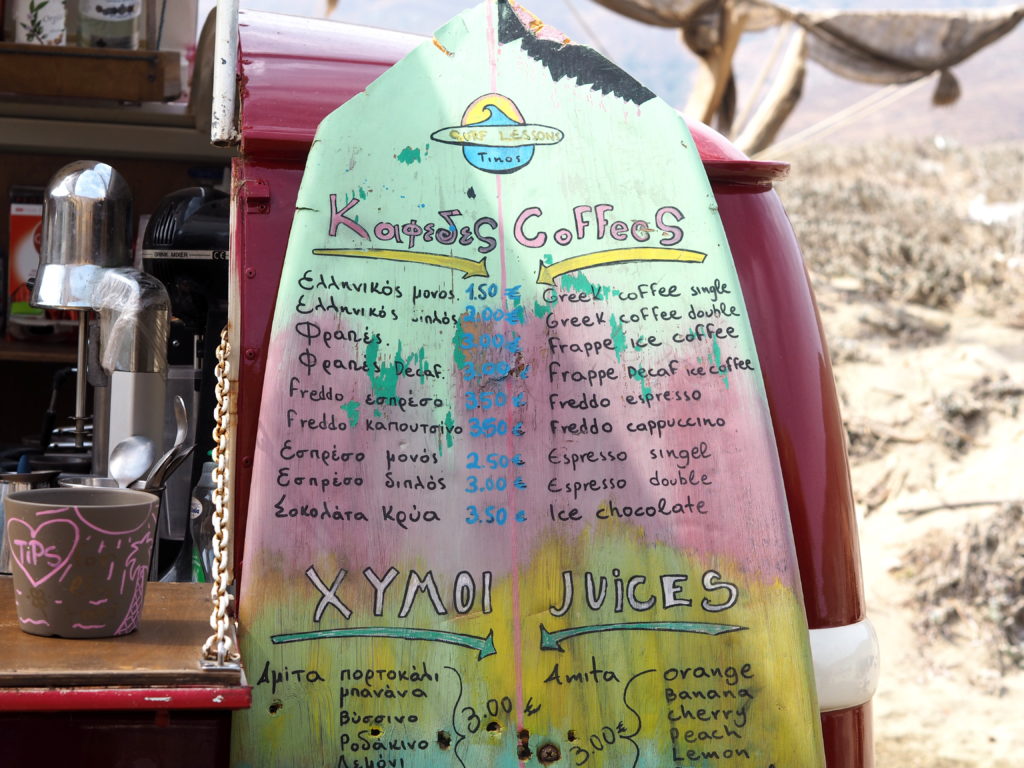 SURF LESSONS
Tinos
Καφεδες Coffees
Ελληνικός μονός. 1.50 € Greek coffee single
Ελληνικός διπλός 2.00 € Greek coffee double
Φραπές. 3.00 € Frappe ice coffee
Φραπές Decaf. 3.00 € Frappe Decaf ice coffee
Freddo εσπρέσο 3.50 € Freddo espresso
Freddo καπουτσίνο 3.50 € Freddo cappuccino
Εσπρέσο μονός 2.50 € Espresso singel
Εσπρέσο διπλός 3.00 € Espresso double
Σοκολάτα κρύα 3.50 € Ice chocolate
TiPS
ΧΥΜΟΙ JUiCES
Αμίτα πορτοκάλι Amita orange
μπανάνα Banana
Βύσσινο 3.00 € cherry
Ροδάκινο 3.00 € Peach
Λεμόνι Lemon
DRINK MIXER